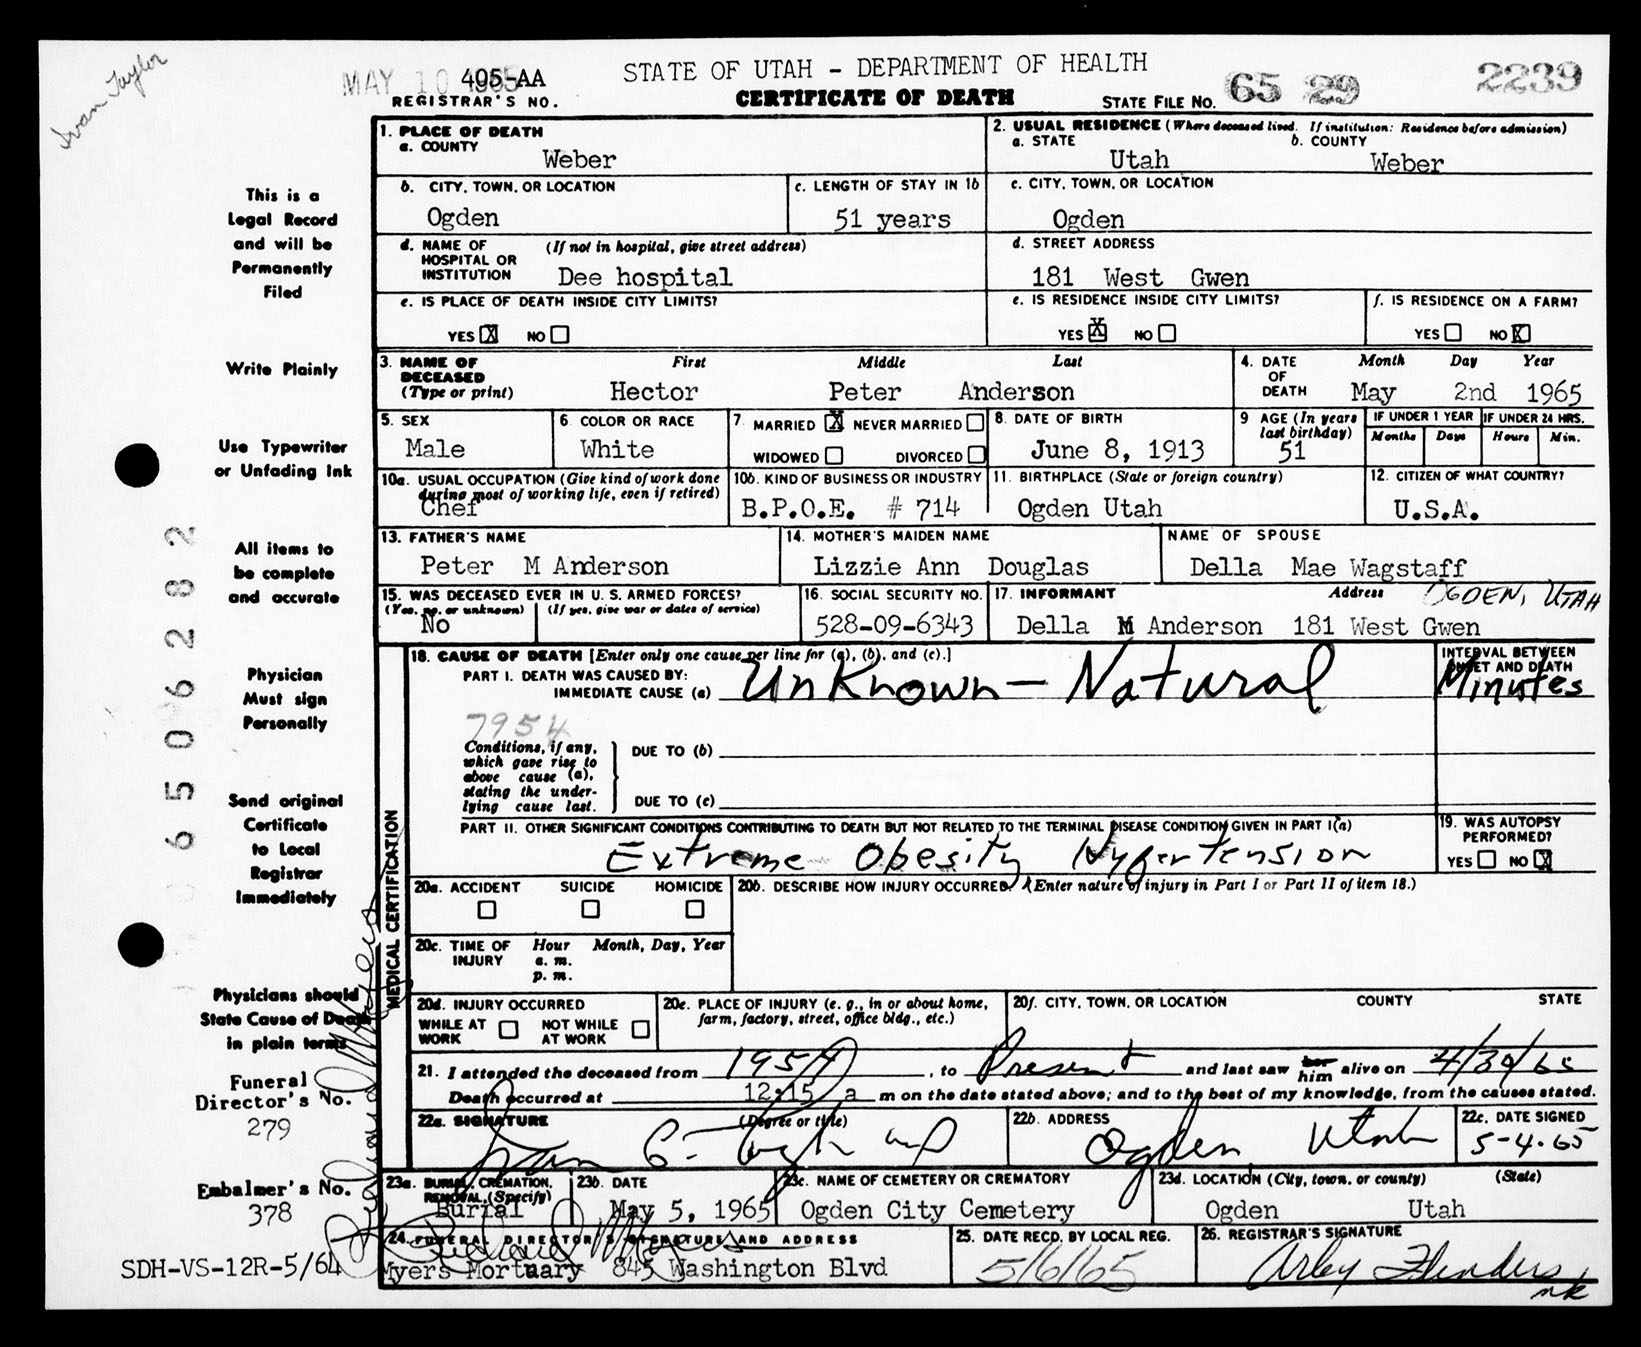 Ivan Taylor
MAY 10 1965 405-AA
REGISTRAR'S NO.
STATE OF UTAH - DEPARTMENT OF HEALTH
CERTIFICATE OF DEATH
STATE FILE NO. 65 29 2239
This is a
Legal Record
and will be
Permanently
Filed
Write Plainly
Use Typewriter
or Unfading Ink
All items to
be complete
and accurate
Physician
Must sign
Personally
Send original
Certificate
to Local
Registrar
Immediately
Physicians should
State Cause of Death
in plain terms
Funeral
Director's No.
279
Embalmer's No.
378
SDH-VS-12R-5/64
6506282
1. PLACE OF DEATH
a. COUNTY
Weber
2. USUAL RESIDENCE (Where deceased lived. If institution: Residence before admission)
a. STATE b. COUNTY
Utah Weber
b. CITY, TOWN, OR LOCATION
Ogden
c. LENGTH OF STAY IN 1b
51 years
c. CITY, TOWN, OR LOCATION
Ogden
d. NAME OF (If not in hospital, give street address)
HOSPITAL OR
INSTITUTION Dee hospital
d. STREET ADDRESS
181 West Gwen
e. IS PLACE OF DEATH INSIDE CITY LIMITS?
YES X NO
e. IS RESIDENCE INSIDE CITY LIMITS?
YES X NO
f. IS RESIDENCE ON A FARM?
YES NO X
3. NAME OF First Middle Last
DECEASED
(Type or print) Hector Peter Anderson
4. DATE Month Day Year
OF
DEATH May 2nd 1965
5. SEX
Male
6. COLOR OR RACE
White
7. MARRIED X NEVER MARRIED
WIDOWED DIVORCED
8. DATE OF BIRTH
June 8, 1913
9 AGE (In years
last birthday)
51
IF UNDER 1 YEAR IF UNDER 24 HRS.
Months Days Hours Min.
10a. USUAL OCCUPATION (Give kind of work done
during most of working life, even if retired)
Chef
10b. KIND OF BUSINESS OR INDUSTRY
B.P.O.E. # 714
11. BIRTHPLACE (State or foreign country)
Ogden Utah
12. CITIZEN OF WHAT COUNTRY?
U.S.A.
13. FATHER'S NAME
Peter M Anderson
14. MOTHER'S MAIDEN NAME
Lizzie Ann Douglas
NAME OF SPOUSE
Della Mae Wagstaff
15. WAS DECEASED EVER IN U.S. ARMED FORCES?
(Yes, no, or unknown) (If yes, give war or dates of service)
No
16. SOCIAL SECURITY NO.
528-09-6343
17. INFORMANT Address OGDEN, UTAH
Della M Anderson 181 West Gwen
MEDICAL CERTIFICATION
18. CAUSE OF DEATH [Enter only one cause per line for (a), (b), and (c).]
PART I. DEATH WAS CAUSED BY:
IMMEDIATE CAUSE (a) Unknown - Natural
INTERVAL BETWEEN
ONSET AND DEATH
Minutes
7954
Conditions, if any,
which gave rise to
above cause (a),
stating the under-
lying cause last.
DUE TO (b)
DUE TO (c)
PART II. OTHER SIGNIFICANT CONDITIONS CONTRIBUTING TO DEATH BUT NOT RELATED TO THE TERMINAL DISEASE CONDITION GIVEN IN PART I(a)
Extreme Obesity Hypertension
19. WAS AUTOPSY
PERFORMED?
YES NO X
20a. ACCIDENT SUICIDE HOMICIDE
20b. DESCRIBE HOW INJURY OCCURRED. (Enter nature of injury in Part I or Part II of item 18.)
20c. TIME OF Hour Month, Day, Year
INJURY a. m.
p. m.
20d. INJURY OCCURRED
WHILE AT NOT WHILE
WORK AT WORK
20e. PLACE OF INJURY (e. g., in or about home,
farm, factory, street, office bldg., etc.)
20f. CITY, TOWN, OR LOCATION COUNTY STATE
21. I attended the deceased from 1954, to Present and last saw her him alive on 4/30/65
Death occurred at 12:15 a m on the date stated above; and to the best of my knowledge, from the causes stated.
22a. SIGNATURE (Degree or title)
Ivan C. Taylor MD
22b. ADDRESS
Ogden Utah
22c. DATE SIGNED
5-4-65
23a. BURIAL, CREMATION,
REMOVAL, (Specify)
Burial
23b. DATE
May 5, 1965
23c. NAME OF CEMETERY OR CREMATORY
Ogden City Cemetery
23d. LOCATION (City, town, or county) (State)
Ogden Utah
24. FUNERAL DIRECTOR'S SIGNATURE AND ADDRESS
Richard Myers
Myers Mortuary 845 Washington Blvd
25. DATE RECD. BY LOCAL REG.
5/6/65
26. REGISTRAR'S SIGNATURE
Arley Flinders
nk